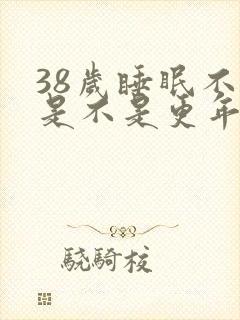 38歲睡眠不
是不是更年
驍騎校